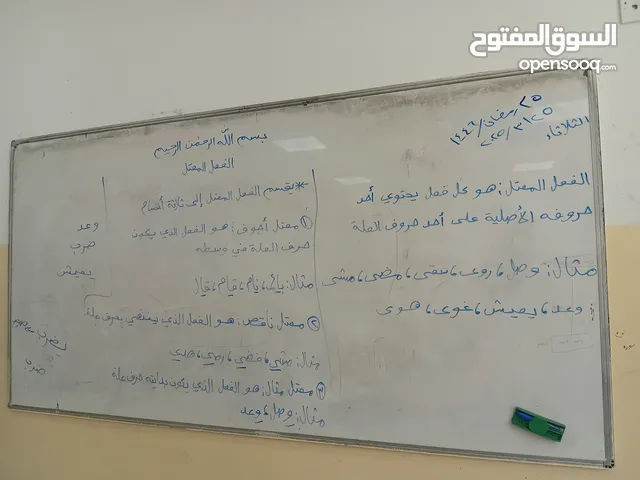 السوق المفتوح
opensooq.com
الثلاثاء
٢٥ رمضان / ١٤٤٦
٢٠٢٥/٣/٢٥
بسم الله الرحمن الرحيم
الفعل المعتل
الفعل المعتل: هو كل فعل يحتوي أحد
حروفه الأصلية على أحد حروف العلة
مثال: وصل، روى، سقى، مضى، مشى
وعد، يعيش، غوى، هوى
* يقسم الفعل المعتل إلى ثلاثة أقسام
١ معتل أجوف: هو الفعل الذي يكون
حرف العلة في وسطه
مثال: بائع، نام، قيام، قال
٢ معتل ناقص: هو الفعل الذي ينتهي بحرف علة
مثال: مشي، قضي، رضي، هدي
٣ معتل مثال: هو الفعل الذي يكون بدايته حرف علة
مثال: وصل، وعد
وعد
ضرب
يعيش
يضرب
ضرب